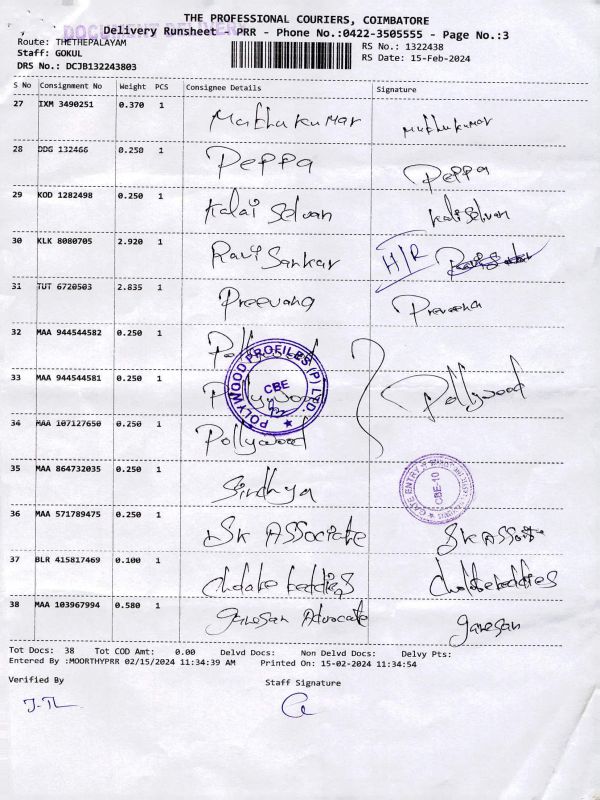 THE PROFESSIONAL COURIERS, COIMBATORE
DOCUMENT DELIVERY
Delivery Runsheet - PRR - Phone No.:0422-3505555 - Page No.:3
Route: THETHEPALAYAM
RS No.: 1322438
Staff: GOKUL
RS Date: 15-Feb-2024
DRS No.: DCJB132243803
S No Consignment No Weight PCS Consignee Details Signature
27 IXM 3490251 0.370 1 Muthukumar muthukumar
28 DDG 132466 0.250 1 Peppa Peppa
29 KOD 1282498 0.250 1 Kalai Selvan kaliselvan
30 KLK 8080705 2.920 1 Ravi Sankar H/R
31 TUT 6720503 2.835 1 Preevang Preveena
32 MAA 944544582 0.250 1 Pollywood
33 MAA 944544581 0.250 1 Pollywood Pollywood
POLYWOOD PROFILES (P) LTD.
CBE
34 MAA 107127650 0.250 1 Pollywood
35 MAA 864732035 0.250 1 Sindhya
GATE ENTRY
CBE-10
36 MAA 571789475 0.250 1 SK ASSociate SK ASSoit
37 BLR 415817469 0.100 1
38 MAA 103967994 0.580 1 ganesan Advocate ganesan
Tot Docs: 38 Tot COD Amt: 0.00 Delvd Docs: Non Delvd Docs: Delvy Pts:
Entered By :MOORTHYPRR 02/15/2024 11:34:39 AM Printed On: 15-02-2024 11:34:54
Verified By
Staff Signature